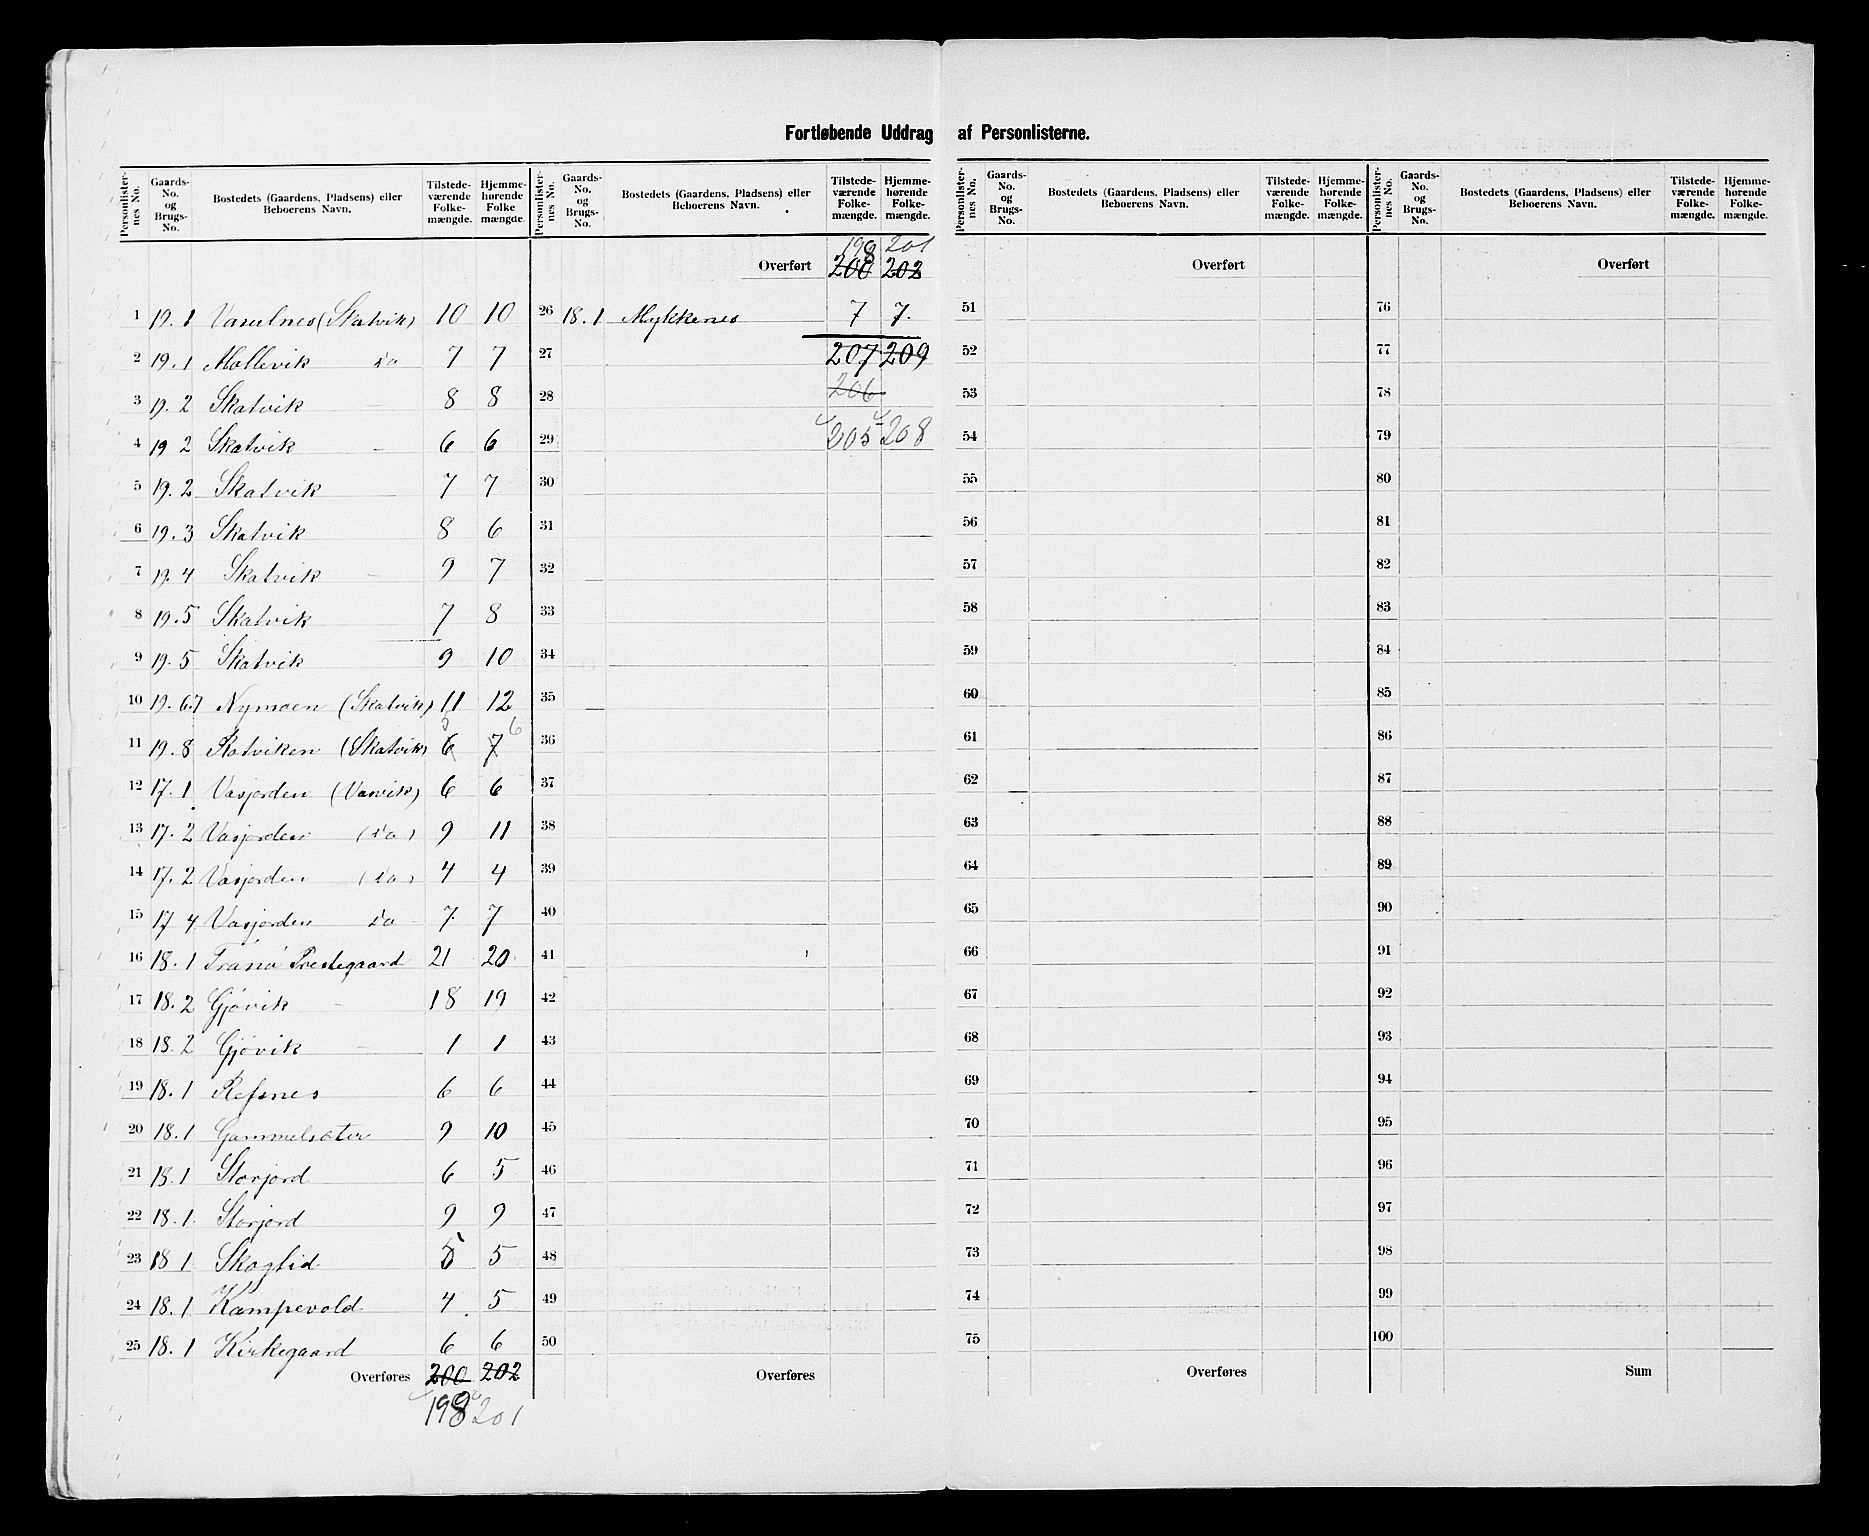 Fortløbende Uddrag af Personlisterne.
Personlister-nes No. Gaards-No. og Brugs-No. Bostedets (Gaardens, Pladsens) eller Beboerens Navn. Tilstede-værende Folke-mængde. Hjemme-hørende Folke mængde.
1 19.1 (Skatvik) 10 10
2 19.1 Møllevik do 7 7
3 19.2 Skatvik 8 8
4 19 2 Skatvik 6 6
5 19.2 Skatvik 7 7
6 19.3 Skatvik 8 6
7 19.4 Skatvik 9 7
8 19.5 Skatvik 7 8
9 19.5 Skatvik 9 10
10 19.67 Nymoen (Skatvik) 11 12
11 19.8 Rotviken (Skatvik) 6 5 7 6
12 17.1 Vasjorden (Vasvik) 6 6
13 17.2 Vasjorden (do) 9 11
14 17.2 Vasjorden (do) 4 4
15 17 4 Vasjorden do 7 7
16 18.1 Tranø Prestegaard 21 20
17 18.2 Gjøvik 18 19
18 18.2 Gjøvik 1 1
19 18.1 Refsnes 6 6
20 18.1 Gammelsæter 9 10
21 18.1 Storjord 6 5
22 18.1 Storjord 9 9
23 18 1 Skoglid 5 5
24 18.1 Kampevold 4 5
25 18.1 Kirkegaard 6 6
Overføres 200 202
198 201
Personlister-nes No. Gaards-No. og Brugs-No. Bostedets (Gaardens, Pladsens) eller Beboerens Navn. Tilstede-værende Folke-mængde. Hjemme-hørende Folke-mængde.
198 201
Overført 200 202
26 18.1 Mykkenes 7 7
27 207 209
28 206
29 205 208
30
31
32
33
34
35
36
37
38
39
40
41
42
43
44
45
46
47
48
49
50
Overføres
Personlister-nes No. Gaards-No. og Brugs-No. Bostedets (Gaardens, Pladsens) eller Beboerens Navn. Tilstede-værende Folke-mængde. Hjemme-hørende Folke-mængde.
Overført
51
52
53
54
55
56
57
58
59
60
61
62
63
64
65
66
67
68
69
70
71
72
73
74
75
Overføres
Personlister-nes No. Gaards-No. og Brugs-No. Bostedets (Gaardens, Pladsens) eller Beboerens Navn. Tilstede-værende Folke-mængde. Hjemme-hørende Folke-mængde.
Overført
76
77
78
79
80
81
82
83
84
85
86
87
88
89
90
91
92
93
94
95
96
97
98
99
100
Sum